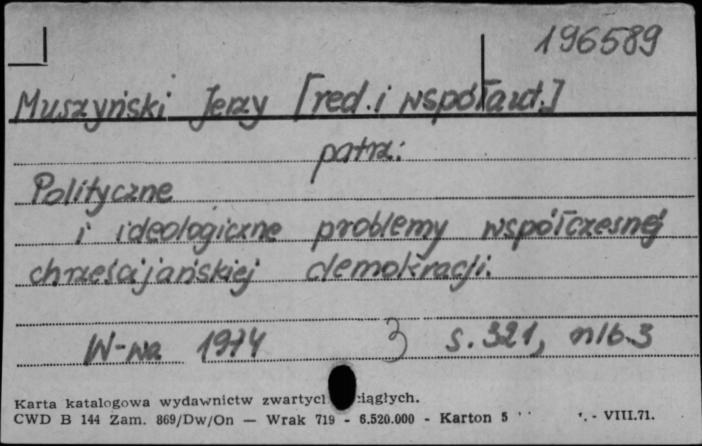 196589
Muszyński Jerzy [red. i współaut.]
patrz:
Polityczne
i ideologiczne problemy współczesnej
chrześcijańskiej demokracji.
W-wa 1974 3 s. 321, nlb. 3
Karta katalogowa wydawnictw
CWD B 144 Zam. 869/Dw/On — Wrak 719 - 6.520.000 - Karton 5 - VIII.71.